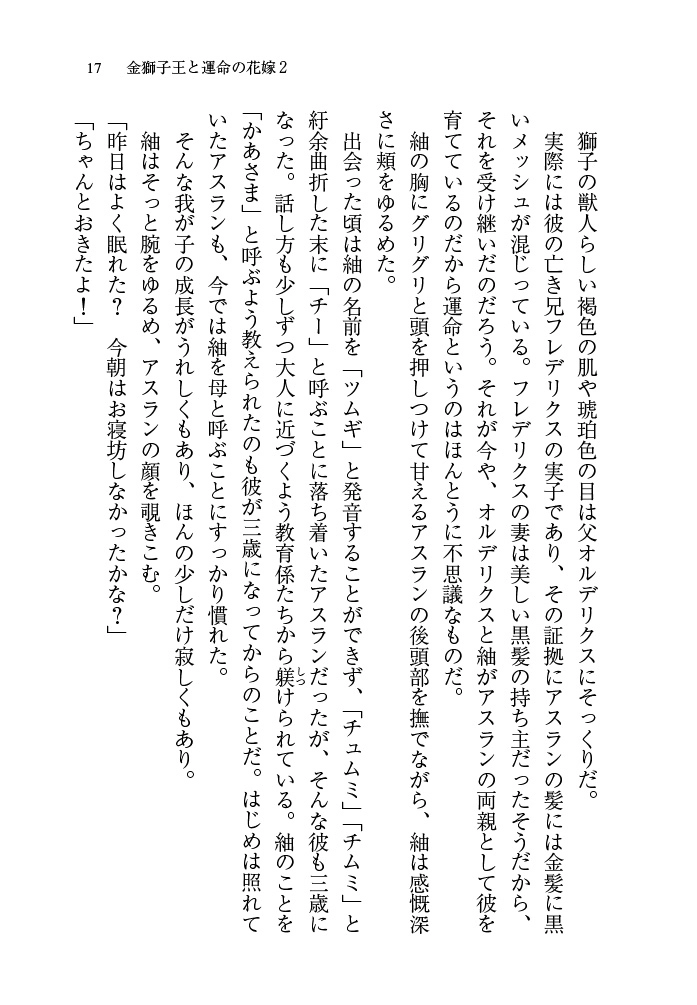 17　金獅子王と運命の花嫁２
獅子の獣人らしい褐色の肌や琥珀色の目は父オルデリクスにそっくりだ。
実際には彼の亡き兄フレデリクスの実子であり、その証拠にアスランの髪には金髪に黒
いメッシュが混じっている。フレデリクスの妻は美しい黒髪の持ち主だったそうだから、
それを受け継いだのだろう。それが今や、オルデリクスと紬がアスランの両親として彼を
育てているのだから運命というのはほんとうに不思議なものだ。
紬の胸にグリグリと頭を押しつけて甘えるアスランの後頭部を撫でながら、紬は感慨深
さに頬をゆるめた。
出会った頃は紬の名前を「ツムギ」と発音することができず、「チュムミ」「チムミ」と
紆余曲折した末に「チー」と呼ぶことに落ち着いたアスランだったが、そんな彼も三歳に
なった。話し方も少しずつ大人に近づくよう教育係たちから躾けられている。紬のことを
「かあさま」と呼ぶよう教えられたのも彼が三歳になってからのことだ。はじめは照れて
いたアスランも、今では紬を母と呼ぶことにすっかり慣れた。
そんな我が子の成長がうれしくもあり、ほんの少しだけ寂しくもあり。
紬はそっと腕をゆるめ、アスランの顔を覗きこむ。
「昨日はよく眠れた？　今朝はお寝坊しなかったかな？」
「ちゃんとおきたよ！」
しつ